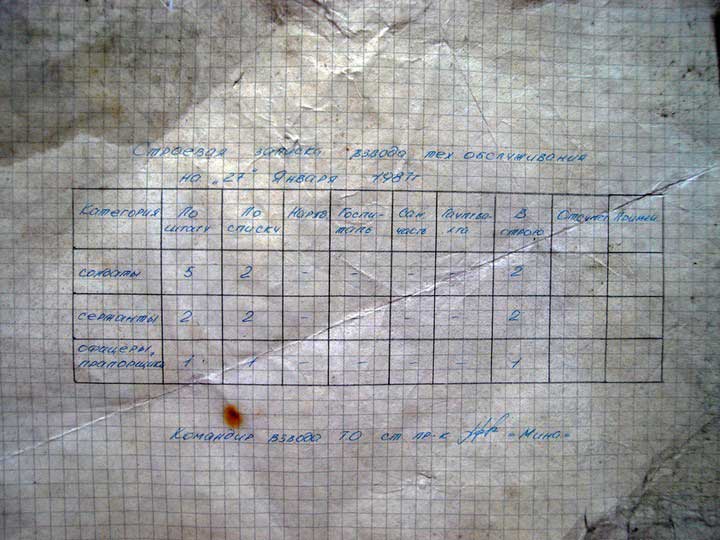 Строевая записка взвода тех обслуживания
на "27" Января 1987г
Категория По штату По списку Наряд Госпи-таль Сан часть Гауптва-хта В строю Отсутст Примеч
солдаты 5 2 - - - - 2
сержанты 2 2 - - - - 2
офицеры, прапорщики 1 1 - - - - 1
Командир взвода ТО ст пр-к